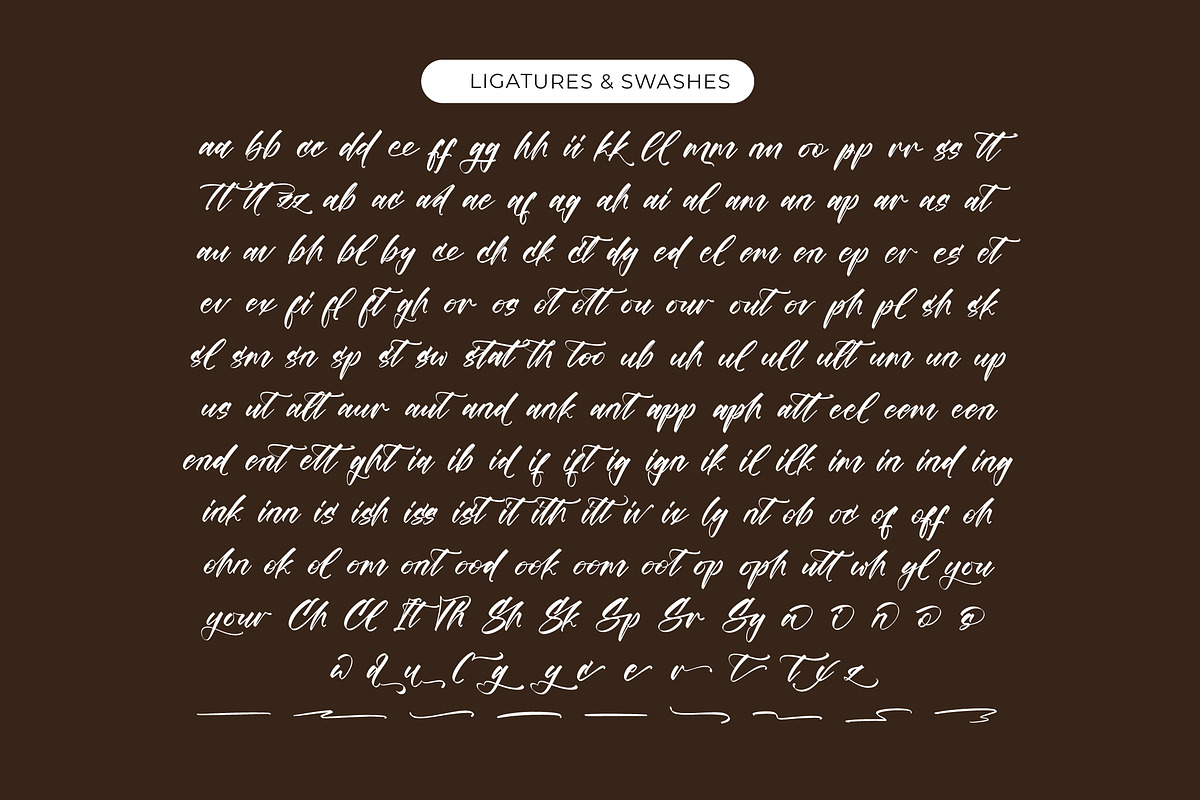 LIGATURES & SWASHES
aa bb cc dd ee ff gg hh ii kk ll mm nn oo pp rr ss tt
tt tt zz ab ac ad ae af ag ah ai al am an ap ar as at
au av bh bl by ce ch ck ct dy ed el em en ep er es et
ev ex fi fl ft gh or os ot ott ou our out ov ph pl sh sk
sl sm sn sp st sw stat th too ub uh ul ull ult um un up
us ut alt aur aut and ank ant app aph att eel eem een
end ent ett ght ia ib id if ift ig ign ik il ilk im in ind ing
ink inn is ish iss ist it ith itt iv ix ly nt ob oc of off oh
ohn ok ol om ont ood ook oom oot op oph utt wh yl you
your Ch Cl It Th Sh Sk Sp Sr Sy a i n o s
g y c e r t t x z